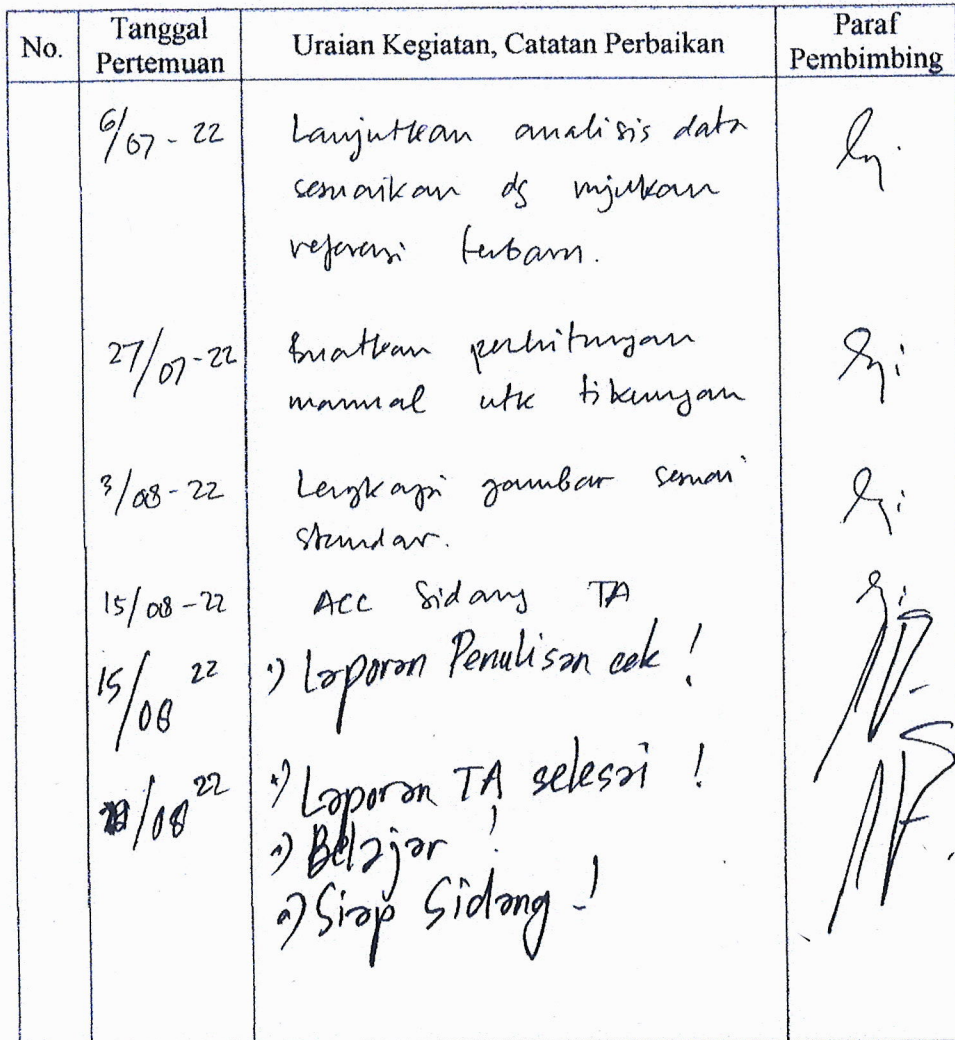 No.
Tanggal Pertemuan
Uraian Kegiatan, Catatan Perbaikan
Paraf Pembimbing
6/07-22
Lanjutkan analisis data
sesuaikan dg rujukan
referensi terbaru.
27/07-22
Buatkan perhitungan
manual utk tikungan
3/08-22
Lengkapi gambar sesuai
standar.
15/08-22
ACC Sidang TA
15/08 22
Laporan Penulisan cek !
/08 22
Laporan TA selesai !
Belajar !
Siap Sidang !